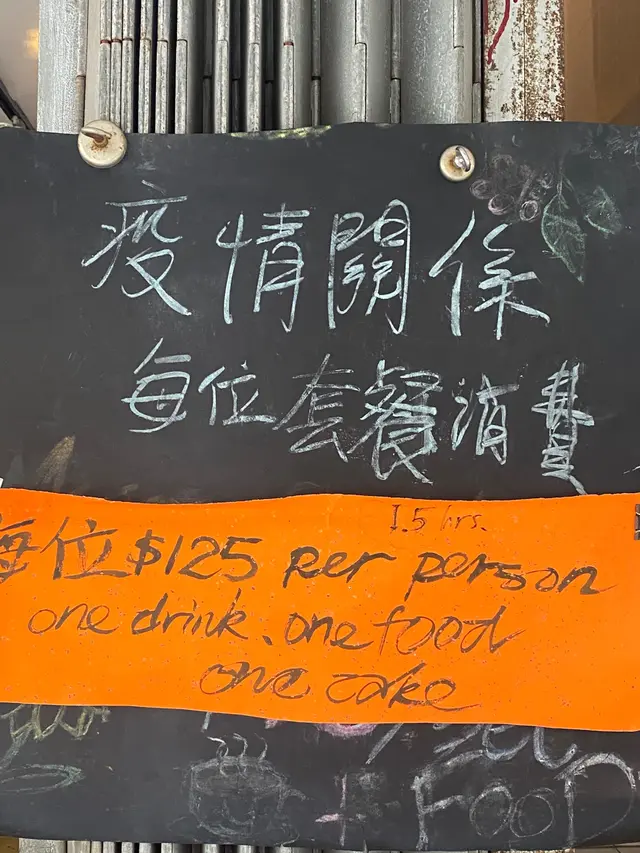 疫情關係
每位套餐消費
1.5 hrs.
每位$125 per person
one drink. one food
one cake
+ FOOD